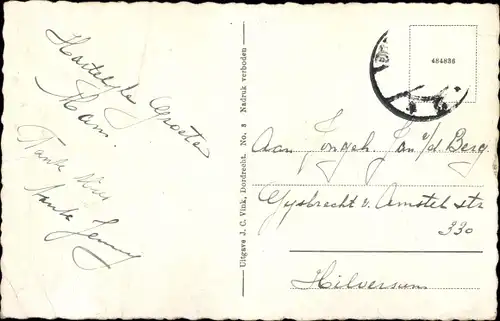 Hartelijke Groeten
Mam.
Tante
Tante Jenny
Uitgave J. C. Vink, Dordrecht. No. 8 Nadruk verboden
484836
Aan Jongeh Jan v/d Berg
Gysbrecht v. Amstel str
330
Hilversum